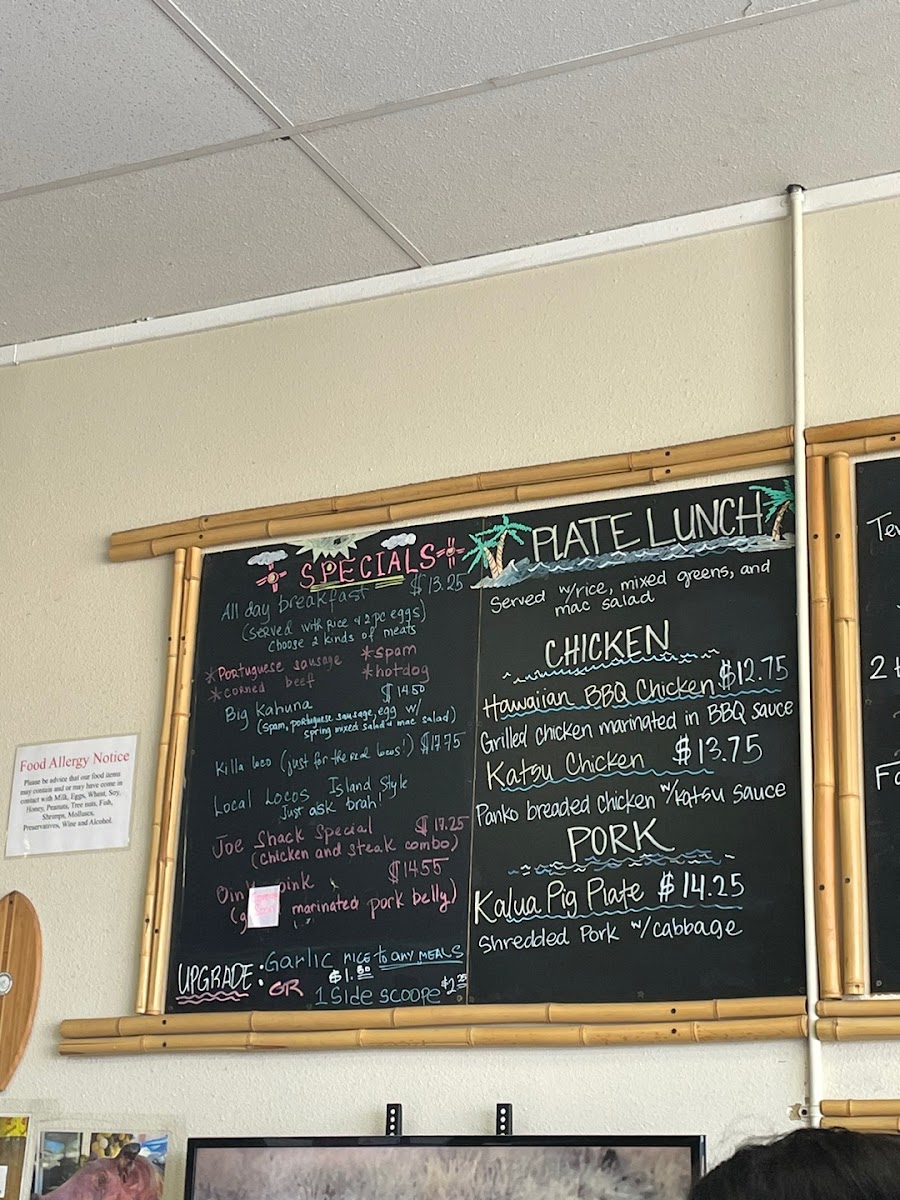 SPECIALS
All day breakfast $13.25
(served with Rice & 2 pc eggs)
Choose 2 kinds of meats
*Portuguese sausage *spam
*corned beef *hotdog
Big Kahuna $14.50
(spam, portuguese sausage, egg w/
spring mixed salad & mac salad)
Killa loco (just for the real locos!) $17.75
Local Locos Island Style
Just ask brah!
Joe Shack Special $17.25
(chicken and steak combo)
$14.55
marinated pork belly)
UPGRADE: Garlic rice to any MEALS
$1.80
OR 1 side scoope $2.25
PLATE LUNCH
Served w/rice, mixed greens, and
mac salad
CHICKEN
Hawaiian BBQ Chicken $12.75
Grilled chicken marinated in BBQ sauce
Katsu Chicken $13.75
Panko breaded chicken w/katsu sauce
PORK
Kalua Pig Plate $14.25
Shredded Pork w/cabbage
Food Allergy Notice
Please be advice that our food items
may contain and or may have come in
contact with Milk, Eggs, Wheat, Soy,
Honey, Peanuts, Tree nuts, Fish,
Shrimps, Molluscs,
Preservatives, Wine and Alcohol.
2